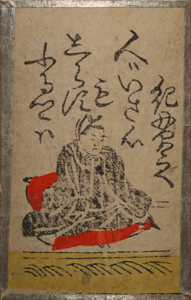 紀貫之
人はいさ心
も
しらす
ふるさとは